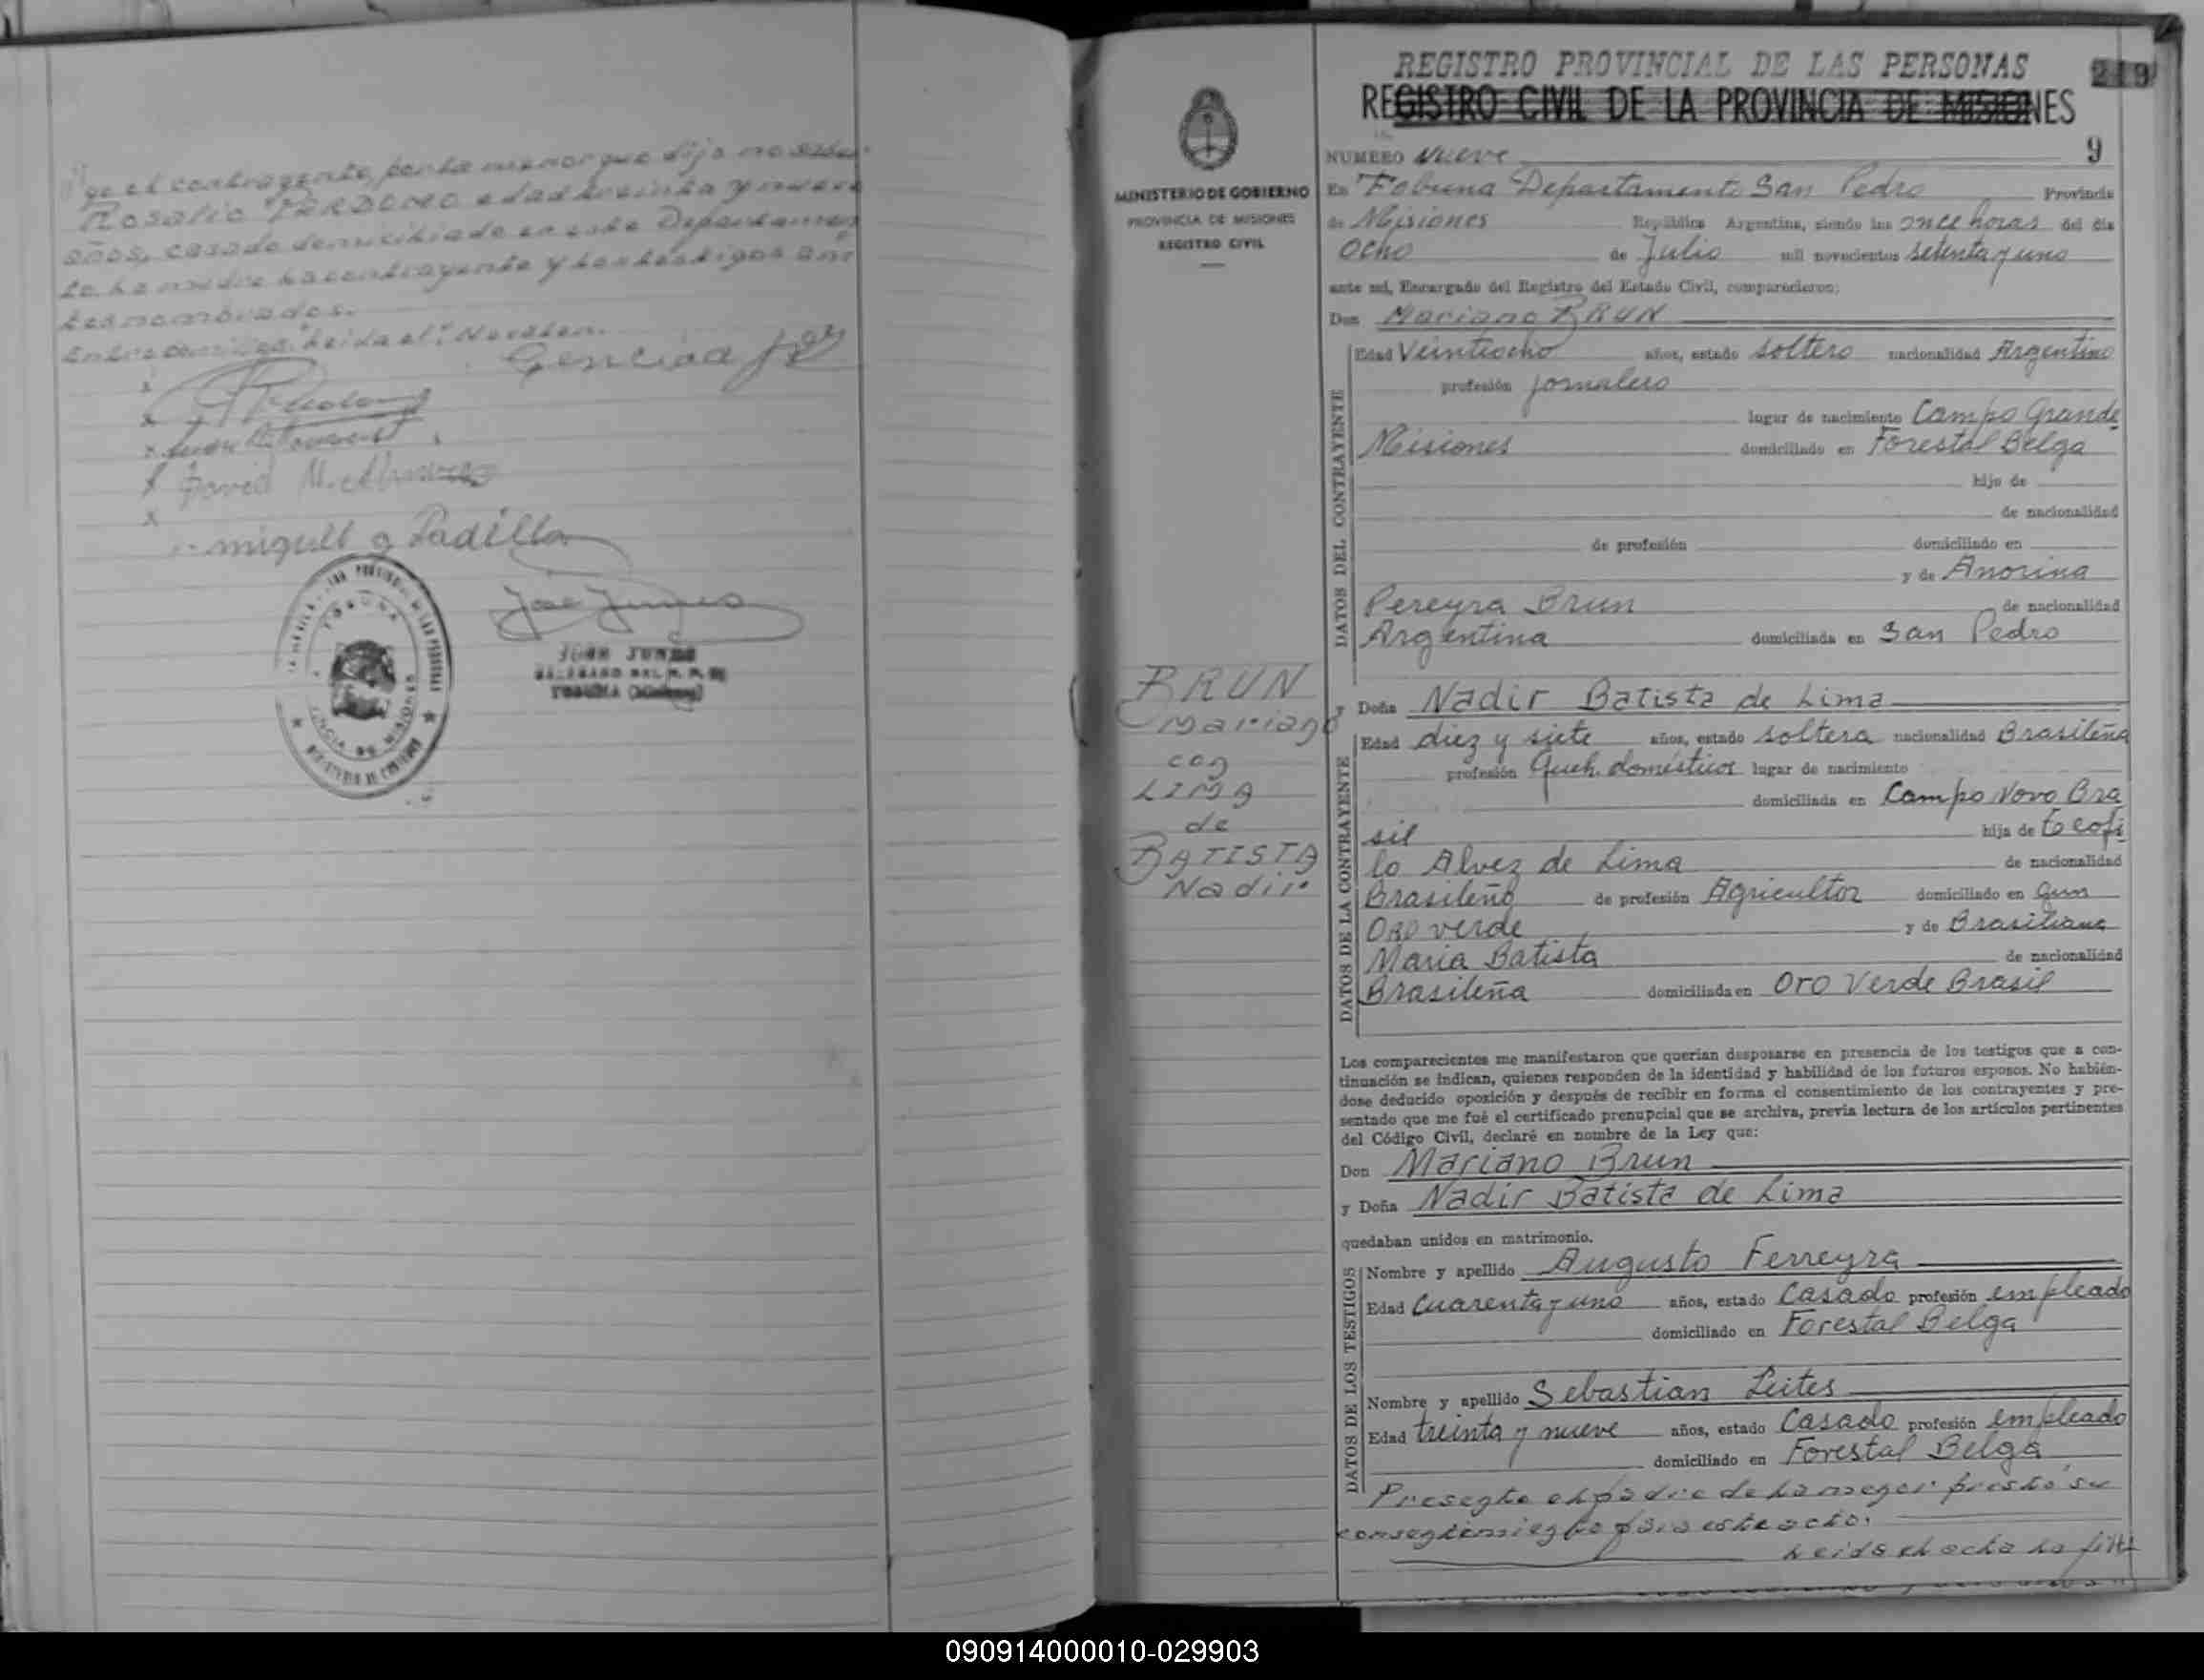 ge el contrayente, por la menor que dijo no saber
Rosalio PERDOMO edad treinta y nueve
años, casado domiciliado en este Departamen
to. La madre la contrayente y los testigos an
tes nombrados.
Entre "Leida el". Novalen.
Gencioa
David M.
miguel a Padilla
TOBUNA
José Junges
JOSE JUNGES
TOBUNA (Misiones)
MINISTERIO DE GOBIERNO
PROVINCIA DE MISIONES
REGISTRO CIVIL
BRUN
Mariano
con
LIMA
de
BATISTA
Nadir
REGISTRO PROVINCIAL DE LAS PERSONAS
219
REGISTRO CIVIL DE LA PROVINCIA DE MISIONES
NUMERO Nueve 9
En Tobuna Departamento San Pedro Provincia
de Misiones República Argentina, siendo las once horas del día
Ocho de Julio mil novecientos setenta y uno
ante mí, Encargado del Registro del Estado Civil, comparecieron:
Don Mariano BRUN
DATOS DEL CONTRAYENTE
Edad Veintiocho años, estado soltero nacionalidad Argentino
profesión jornalero
lugar de nacimiento Campo Grande
Misiones domiciliado en Forestal Belga
hijo de
de nacionalidad
de profesión domiciliado en
y de Anorina
Pereyra Brun de nacionalidad
Argentina domiciliada en San Pedro
y Doña Nadir Batista de Lima
DATOS DE LA CONTRAYENTE
Edad diez y siete años, estado soltera nacionalidad Brasileña
profesión Queh. domésticos lugar de nacimiento
domiciliada en Campo Novo Bra
sil hija de Eeofi
lo Alvez de Lima de nacionalidad
Brasileño de profesión Agricultor domiciliado en
Oro verde y de Brasiliana
Maria Batista de nacionalidad
Brasileña domiciliada en Oro Verde Brasil
Los comparecientes me manifestaron que querían desposarse en presencia de los testigos que a con-
tinuación se indican, quienes responden de la identidad y habilidad de los futuros esposos. No habién-
dose deducido oposición y después de recibir en forma el consentimiento de los contrayentes y pre-
sentado que me fué el certificado prenupcial que se archiva, previa lectura de los artículos pertinentes
del Código Civil, declaré en nombre de la Ley que:
Don Mariano Brun
y Doña Nadir Batista de Lima
quedaban unidos en matrimonio.
DATOS DE LOS TESTIGOS
Nombre y apellido Augusto Ferreyra
Edad Cuarenta y uno años, estado Casado profesión empleado
domiciliado en Forestal Belga
Nombre y apellido Sebastian Leites
Edad treinta y nueve años, estado Casado profesión empleado
domiciliado en Forestal Belga
Presente el padre de la menor prestó su
consentimiento para este acto.
Leida el acta la
090914000010-029903